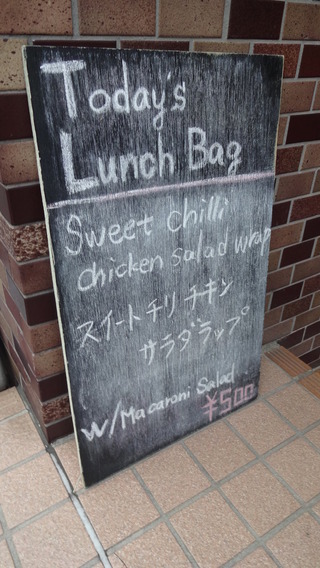 Today's
Lunch Bag
Sweet chilli
chicken salad wrap
スイートチリチキン
サラダラップ
w/Macaroni Salad
¥500